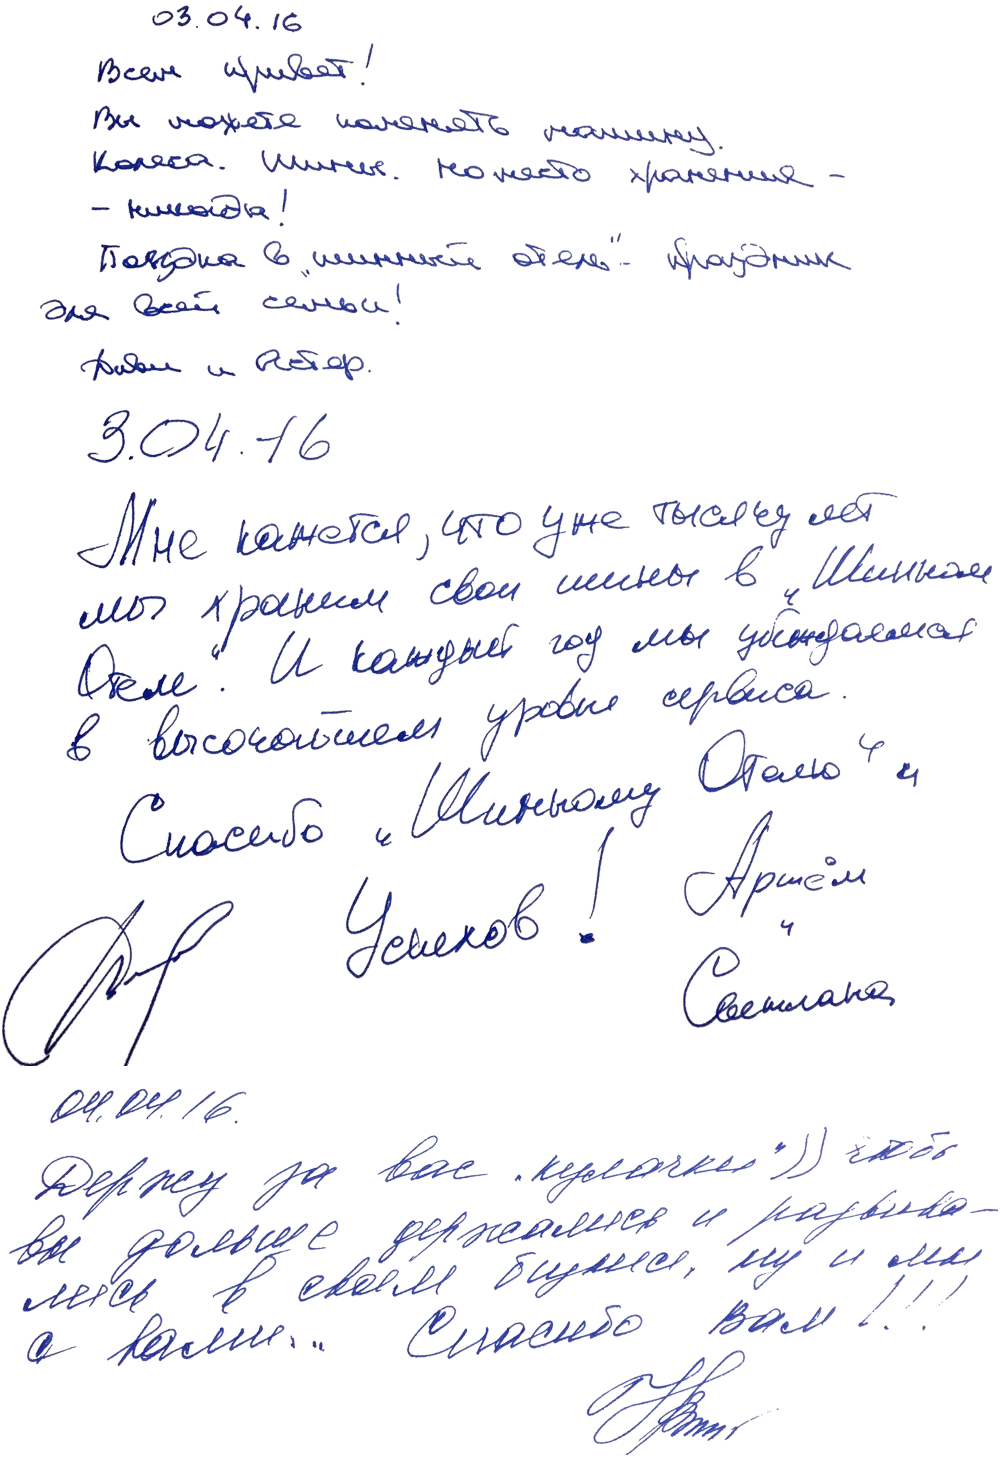 03.04.16
Всем привет!
Вы можете поменять машину.
Колеса. Шины. Но место хранения -
- никогда!
Поездка в „шинный отель“ - праздник
для всей семьи!
и Астер.
3.04.16
Мне кажется, что уже тысячу лет
мы храним свои шины в „Шинном
Отеле“. И каждый год мы убеждаемся
в высочайшем уровне сервиса.
Спасибо „Шинному Отелю“ и
Успехов!
Артём
и
Светлана
04.04.16.
Держу за вас „кулачки“)) чтобы
вы дольше держались и развива-
лись в своем бизнесе, ну и мы
с вами... Спасибо вам!!!